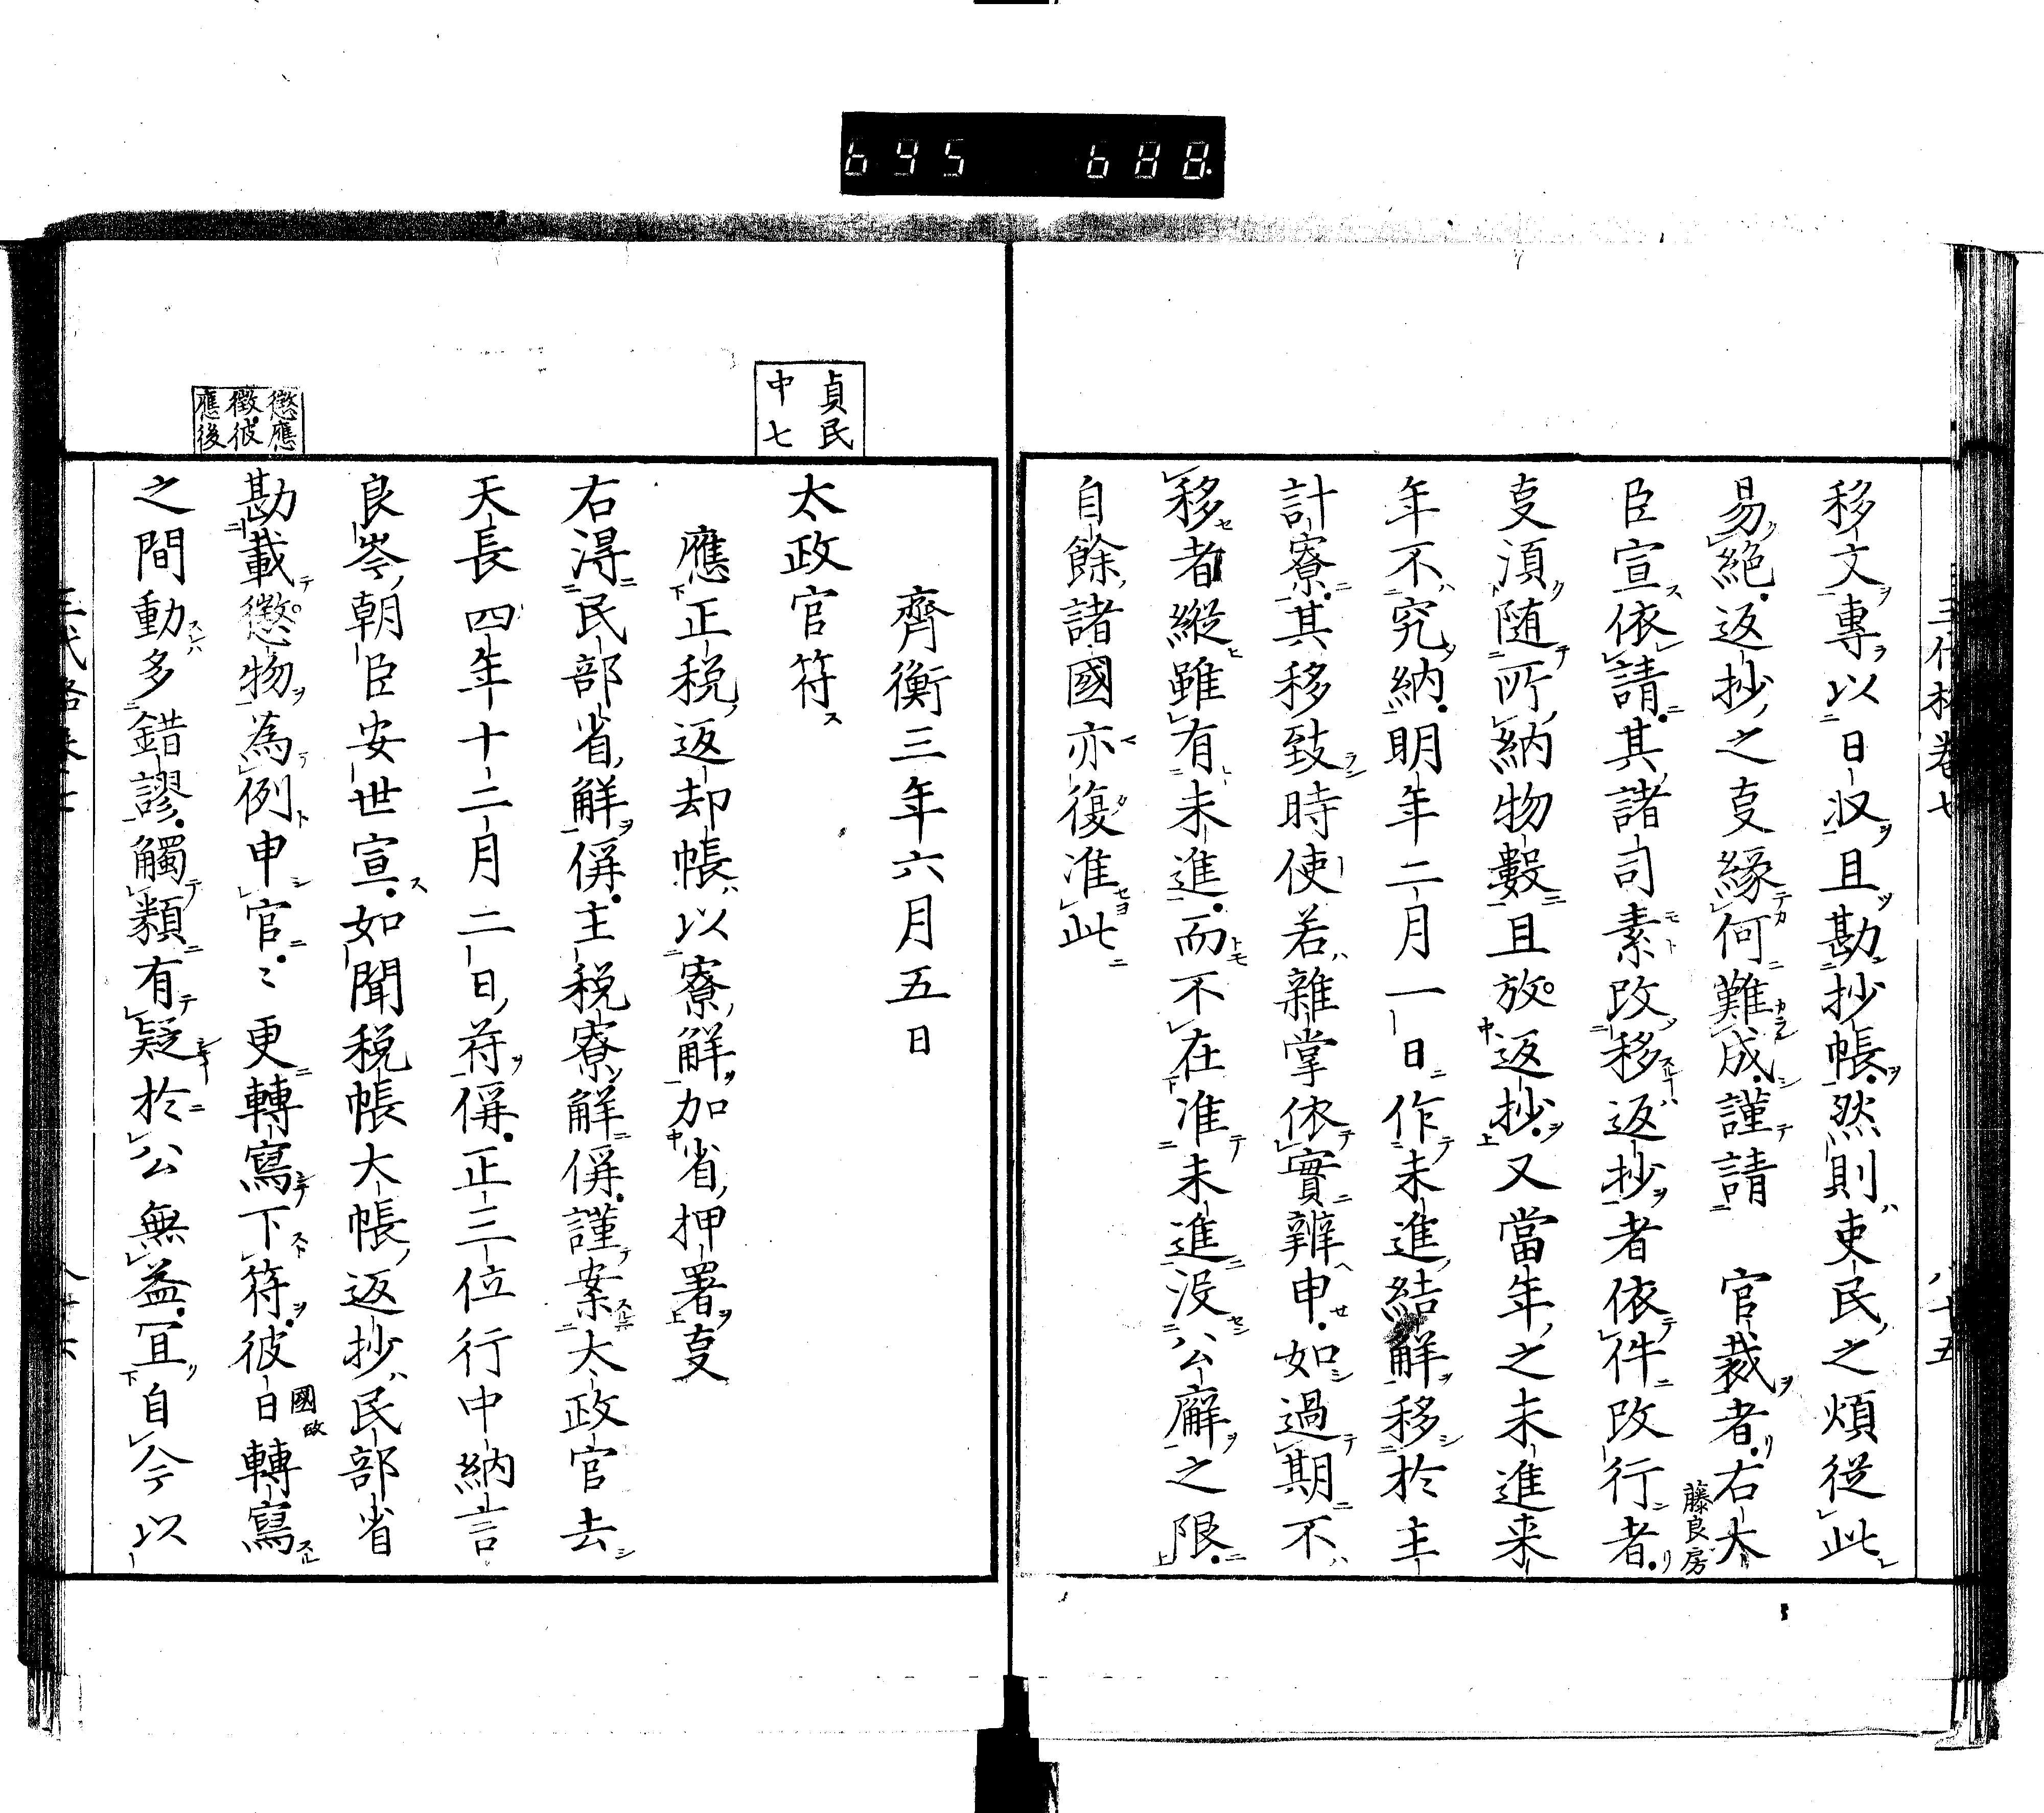 645 688
移文專以日収且勘抄帳然則吏民之煩從此
易絶返抄之㕝緣何難成謹請 官裁者右大
藤良房
臣宣依請其諸司素改移返抄者依件改行者
㕝湏随所納物數且放返抄又當年之未進来
年不究納明年二月一日作未進結解移於主
計寮其移致時使若雜掌依實辨申如過期不
移者縱雖有未進而不在准未進没公廨之限
自餘諸國亦復准此
齊衡三年六月五日
貞民
中七
太政官符
應正税返却帳以寮解加省押署㕝
右得民部省解偁主税寮解偁謹案太政官去
天長四年十二月二日符偁正三位行中納言
良岑朝臣安世宣如聞税帳大帳返抄民部省
懲應
徵彼
應後
勘載懲物為例申官〻更轉寫下符彼日轉寫
國政
之間動多錯謬觸類有疑於公無益宜自今以